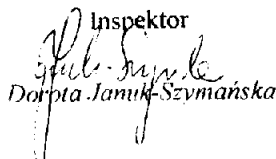 Inspektor
Dorota Januk-Szymańska